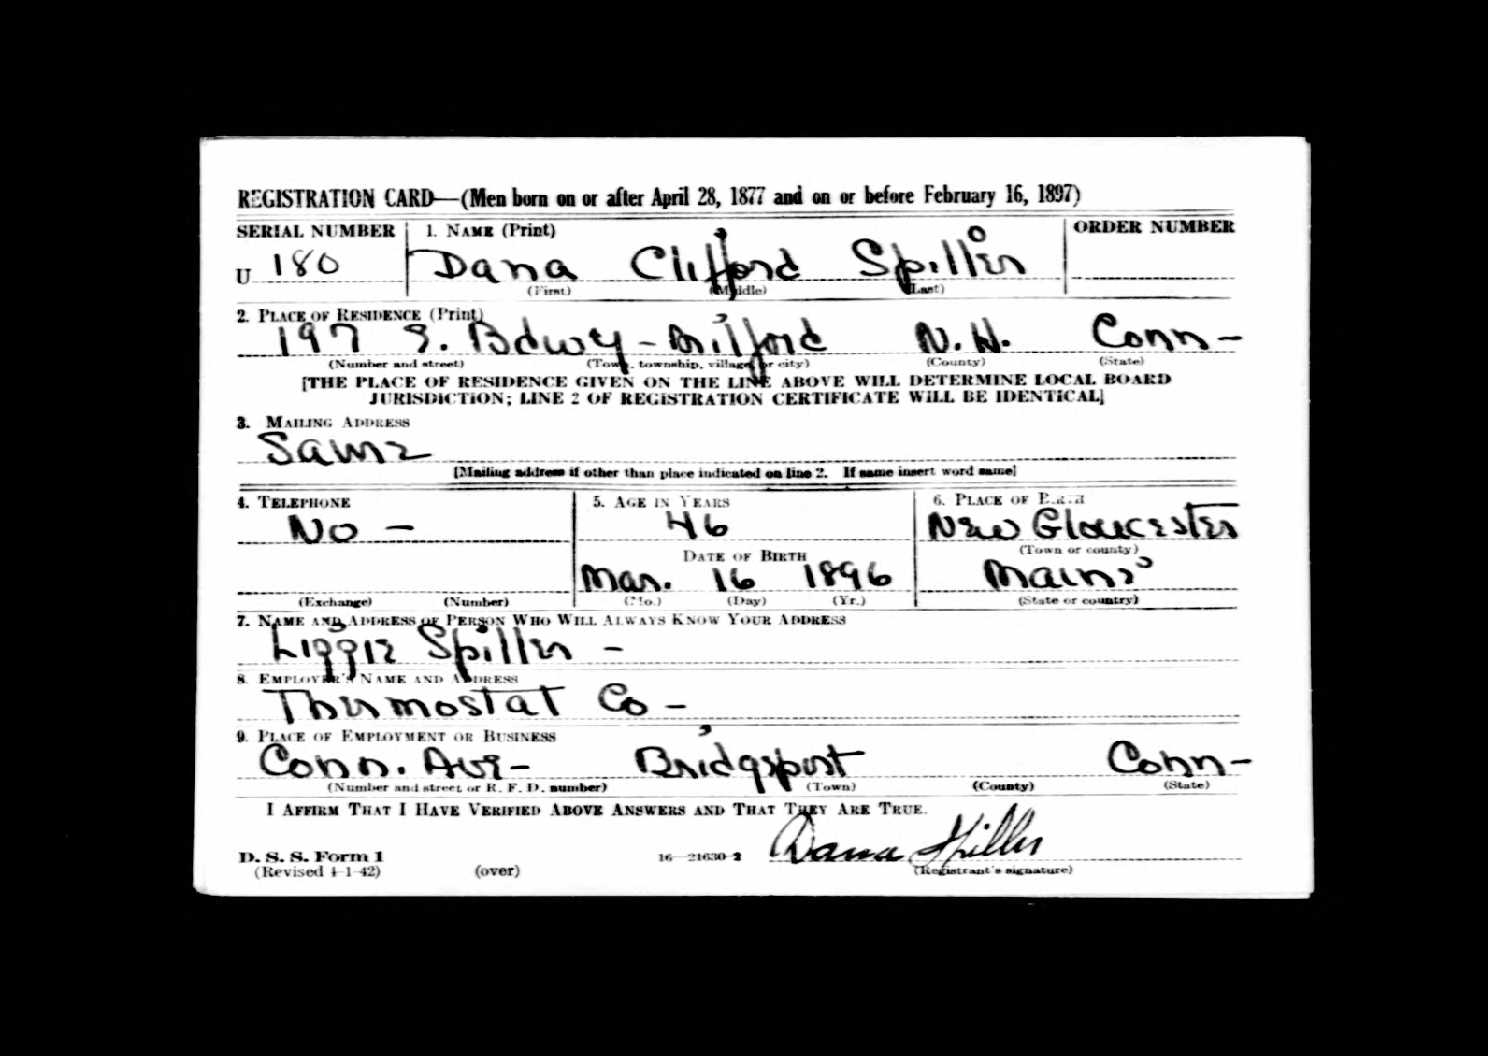 REGISTRATION CARD—(Men born on or after April 28, 1877 and on or before February 16, 1897)
SERIAL NUMBER 1. NAME (Print) ORDER NUMBER
U 180 Dana Clifford Spiller
(First) (Middle) (Last)
2. PLACE OF RESIDENCE (Print)
197 S. Bdwy - Milford N.H. Conn -
(Number and street) (Town, township, village, or city) (County) (State)
[THE PLACE OF RESIDENCE GIVEN ON THE LINE ABOVE WILL DETERMINE LOCAL BOARD
JURISDICTION; LINE 2 OF REGISTRATION CERTIFICATE WILL BE IDENTICAL]
3. MAILING ADDRESS
Same
[Mailing address if other than place indicated on line 2. If same insert word same]
4. TELEPHONE 5. AGE IN YEARS 6. PLACE OF BIRTH
No - 46 New Gloucester
DATE OF BIRTH (Town or county)
Mar. 16 1896 Maine
(Exchange) (Number) (Mo.) (Day) (Yr.) (State or country)
7. NAME AND ADDRESS OF PERSON WHO WILL ALWAYS KNOW YOUR ADDRESS
Lizzie Spiller -
8. EMPLOYER'S NAME AND ADDRESS
Thermostat Co -
9. PLACE OF EMPLOYMENT OR BUSINESS
Conn. Ave - Bridgeport Conn -
(Number and street or R. F. D. number) (Town) (County) (State)
I AFFIRM THAT I HAVE VERIFIED ABOVE ANSWERS AND THAT THEY ARE TRUE.
Dana Spiller
D. S. S. Form 1 16—21630-2
(Revised 4-1-42) (over) (Registrant's signature)